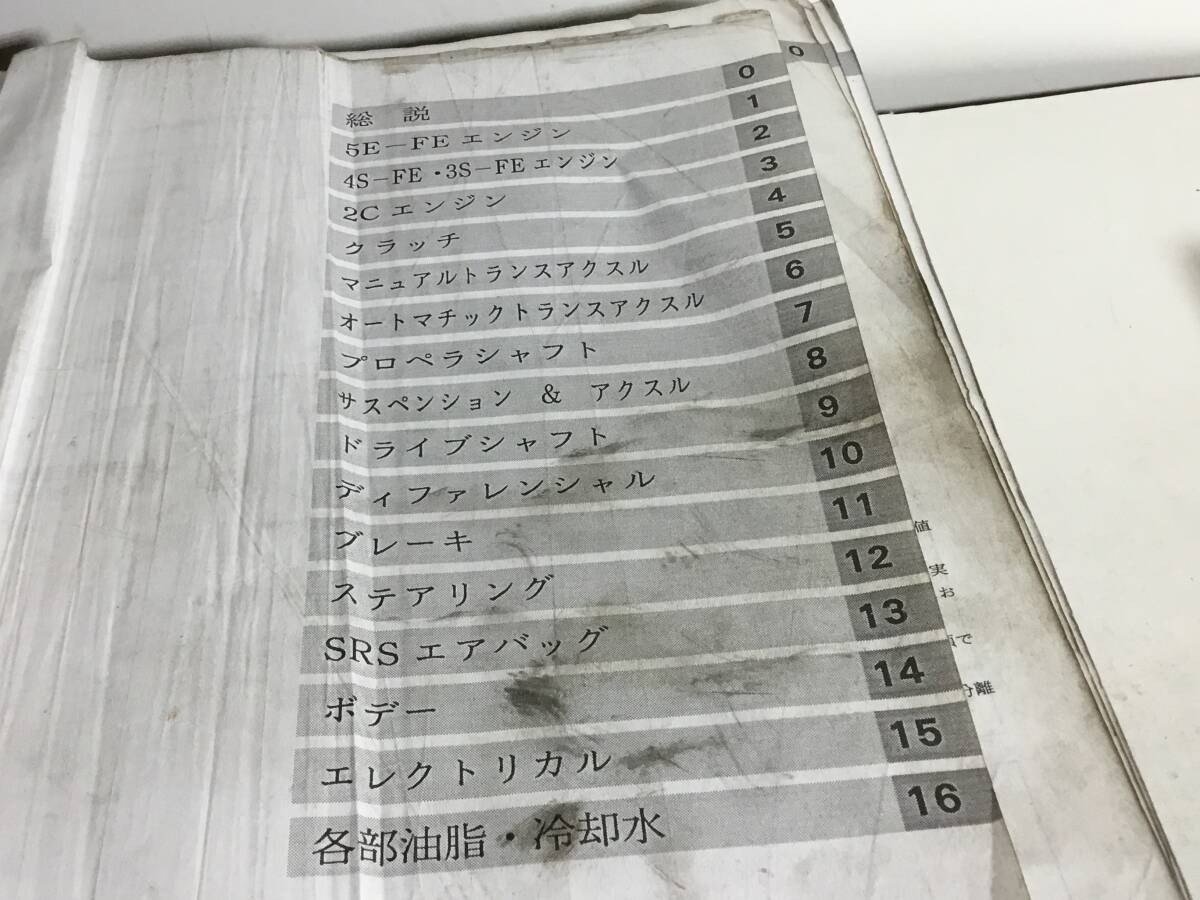 総説 0
5E－FE エンジン 1
4S－FE・3S－FE エンジン 2
2C エンジン 3
クラッチ 4
マニュアルトランスアクスル 5
オートマチックトランスアクスル 6
プロペラシャフト 7
サスペンション & アクスル 8
ドライブシャフト 9
ディファレンシャル 10
ブレーキ 11
ステアリング 12
SRS エアバッグ 13
ボデー 14
エレクトリカル 15
各部油脂・冷却水 16
0
値
実
お
で
分離